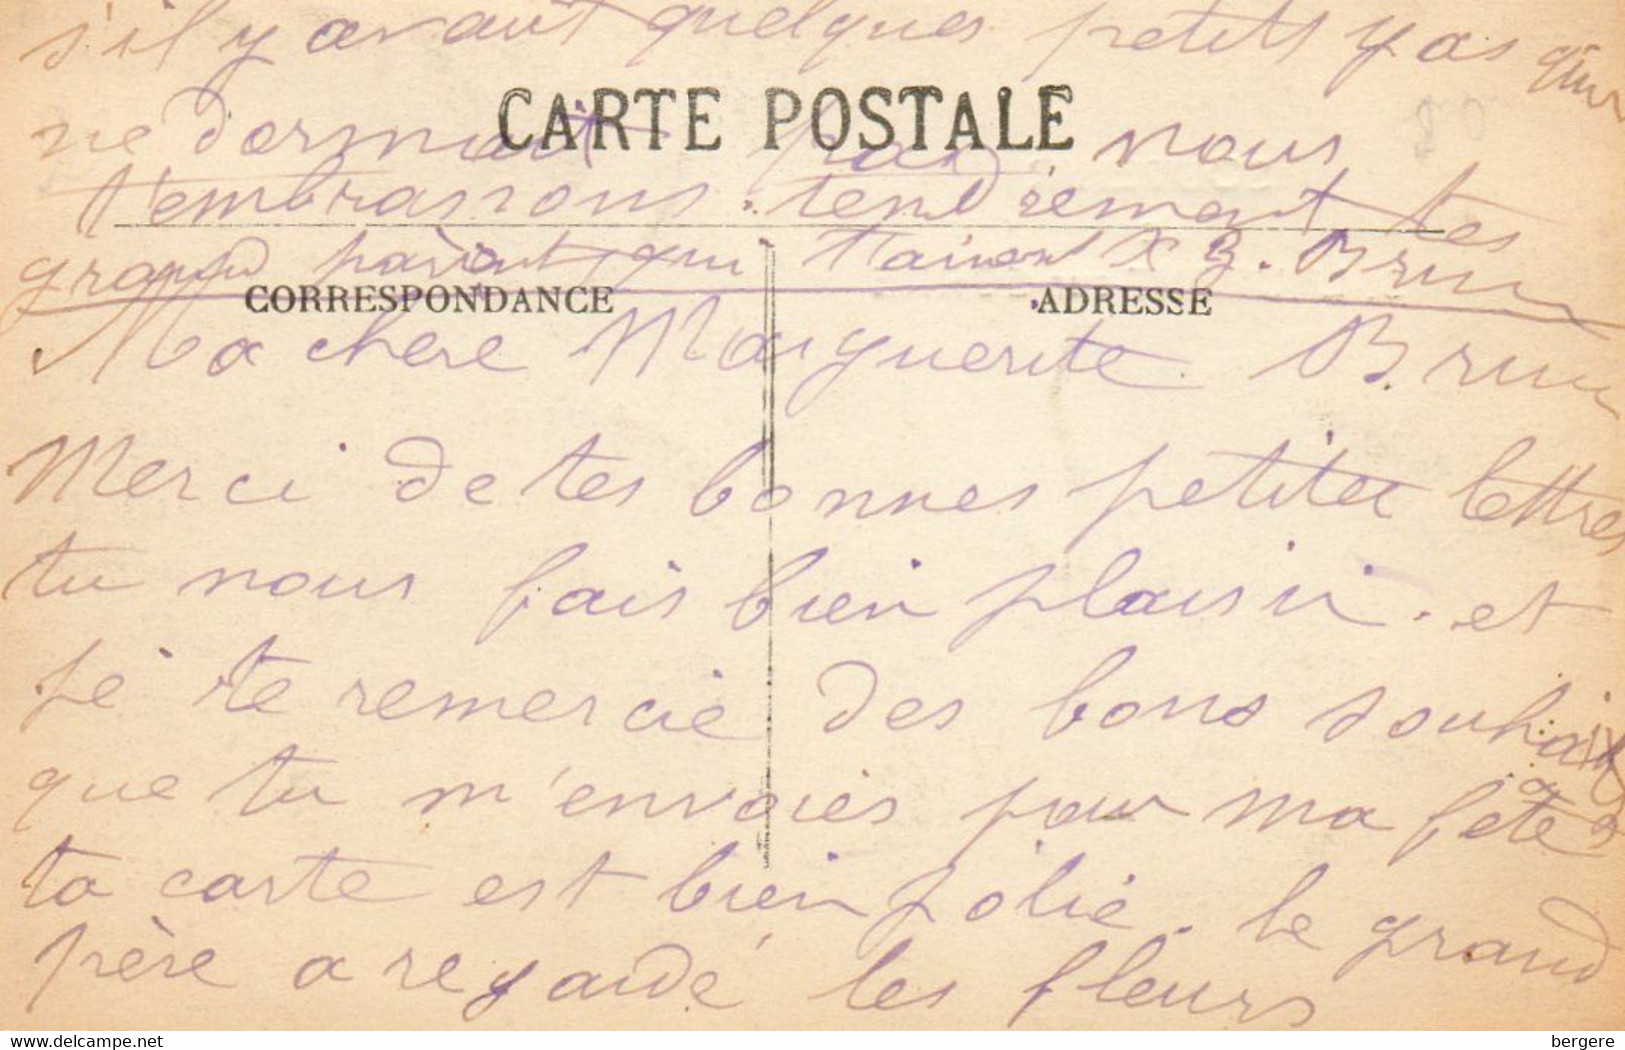 s'il y avait quelques petits gas qui
CARTE POSTALE
ne dormait pas nous
t'embrassons tendrement tes
grand parents qui t'aiment X B. Brun
CORRESPONDANCE
ADRESSE
Ma chere Marguerite Brun
Merci de tes bonnes petites lettres
tu nous fais bien plaisir. et
je te remercie des bons souhaits
que tu m'envoies pour ma fête
ta carte est bien jolie. le grand
père a regardé les fleurs
bergere